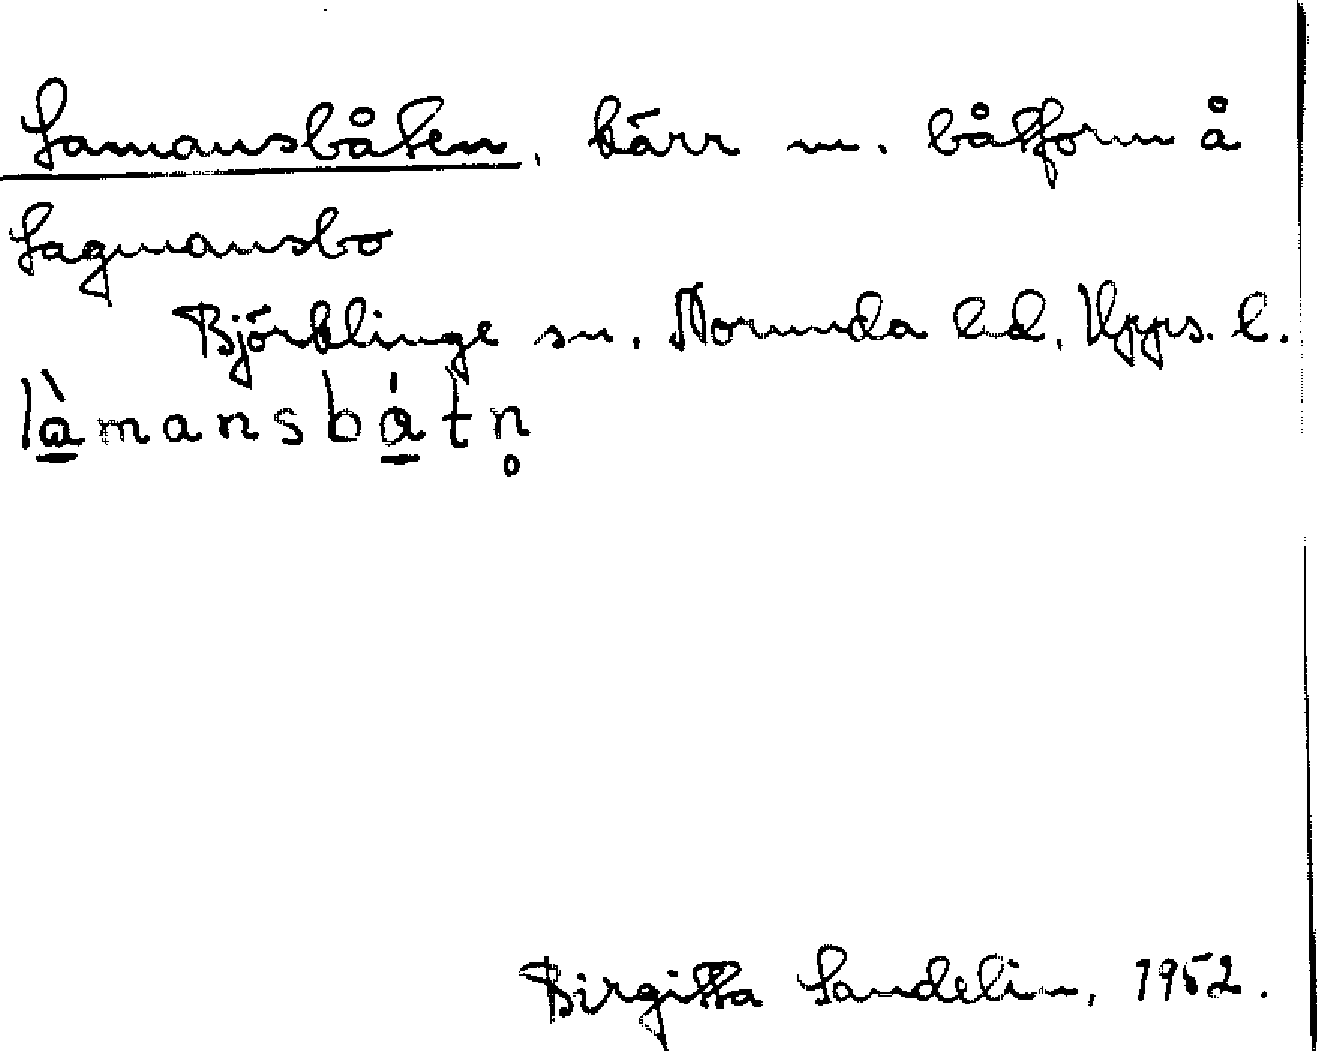 Lamansbåten, kärr m. båtform å
Lagmansbo
Björklinge sn. Norunda hd, Upps. l.
là̱mansbá̱tn̥
Birgitta Sandelin, 1952.